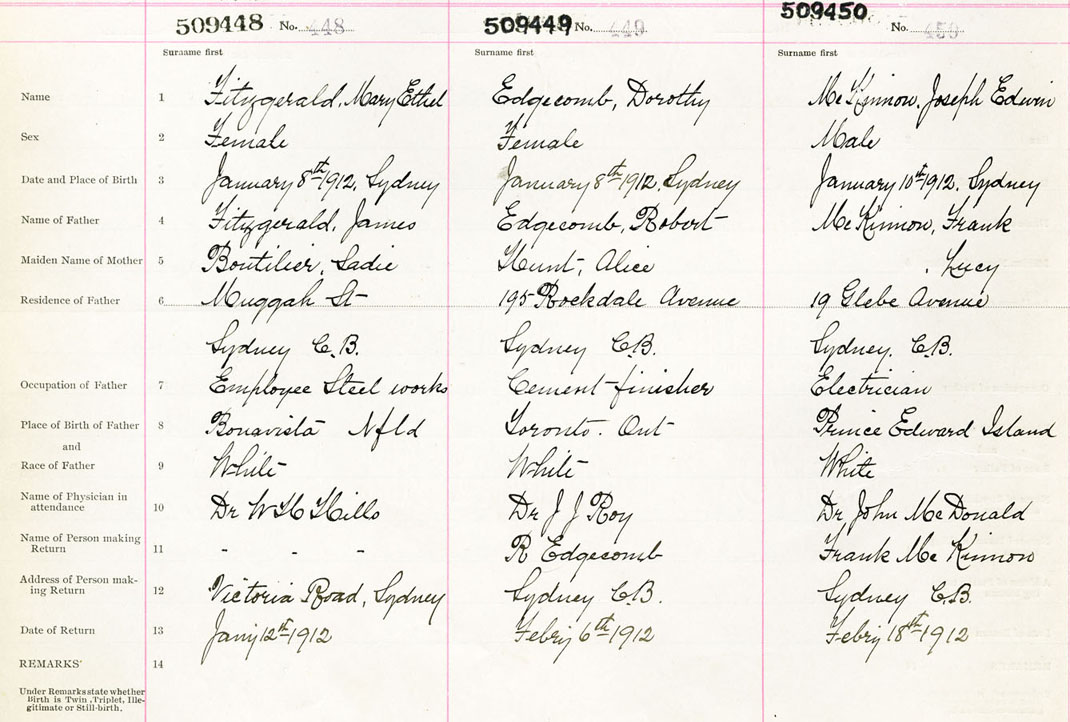 509448 No. 448 509449 No. 449 509450 No. 450
Surname first Surname first Surname first
Name 1 Fitzgerald, Mary Ethel Edgecomb, Dorothy McKinnon, Joseph Edwin
Sex 2 Female Female Male
Date and Place of Birth 3 January 8th 1912, Sydney January 8th 1912, Sydney January 10th 1912, Sydney
Name of Father 4 Fitzgerald, James Edgecomb, Robert McKinnon, Frank
Maiden Name of Mother 5 Boutilier, Sadie Hunt, Alice , Lucy
Residence of Father 6 Muggah St 195 Rockdale Avenue 19 Glebe Avenue
Sydney C.B. Sydney C.B. Sydney. C.B.
Occupation of Father 7 Employee Steel works Cement finisher Electrician
Place of Birth of Father 8 Bonavista Nfld Toronto. Ont Prince Edward Island
and
Race of Father 9 White White White
Name of Physician in
attendance 10 Dr W H Hills Dr J J Roy Dr John McDonald
Name of Person making
Return 11 - - - R Edgecomb Frank McKinnon
Address of Person mak-
ing Return 12 Victoria Road, Sydney Sydney C.B. Sydney C.B.
Date of Return 13 Jany 12th 1912 Febry 6th 1912 Febry 18th 1912
REMARKS' 14
Under Remarks state whether
Birth is Twin, Triplet, Ille-
gitimate or Still-birth.